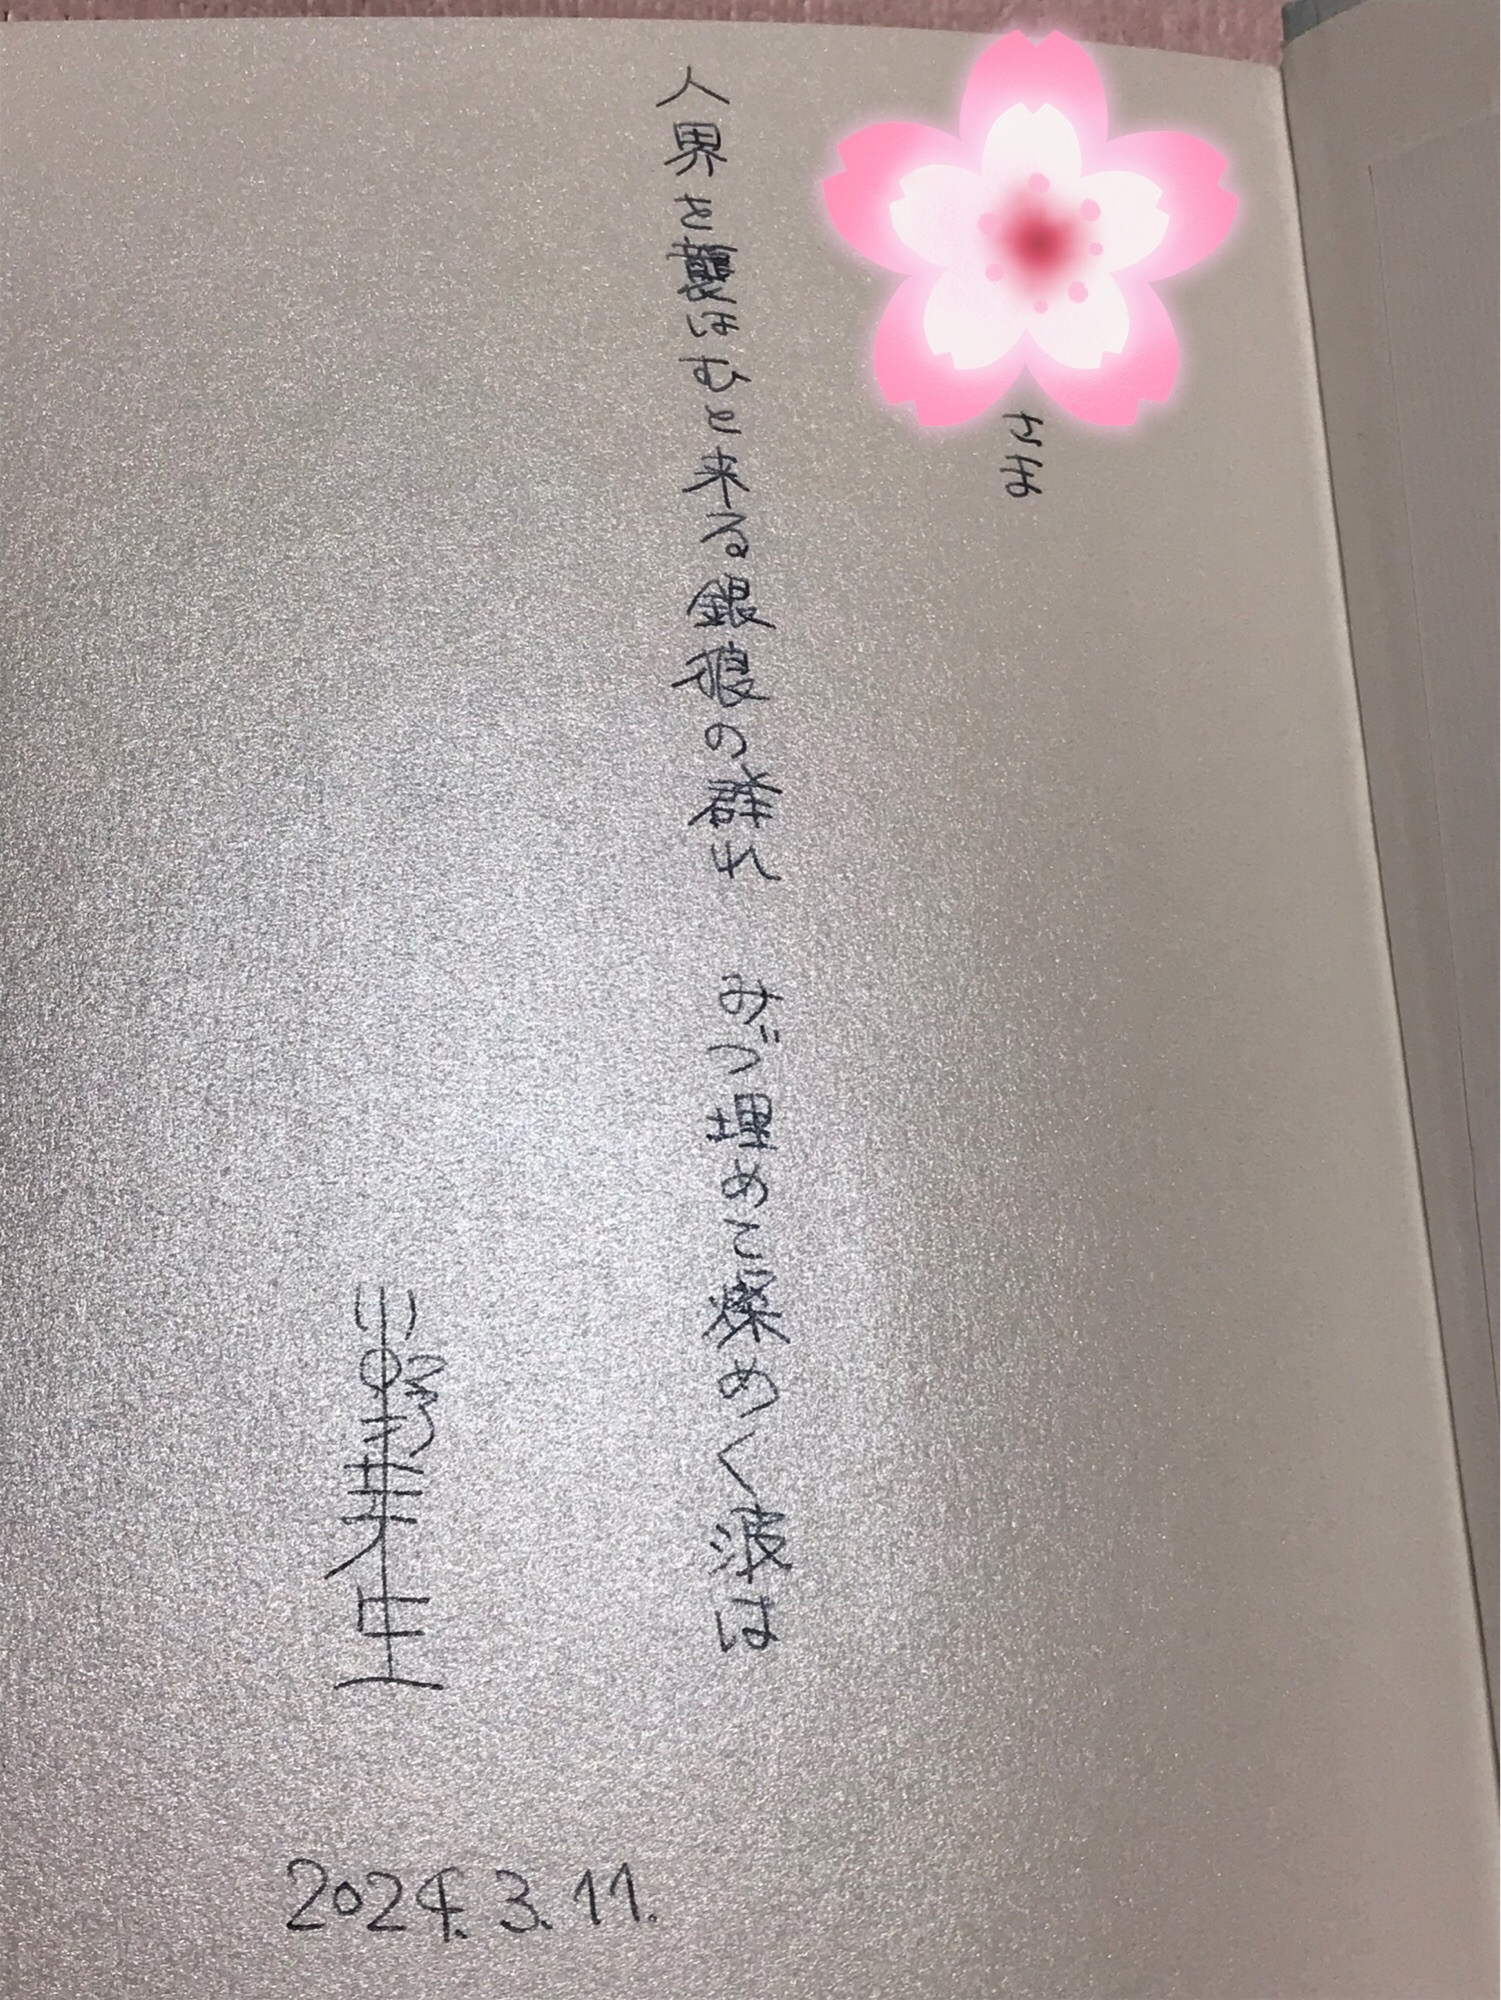 さま
人界を襲はむと来る銀狼の群れ みづ埋めこ燦めく波は
川野芽生
2024.3.11.